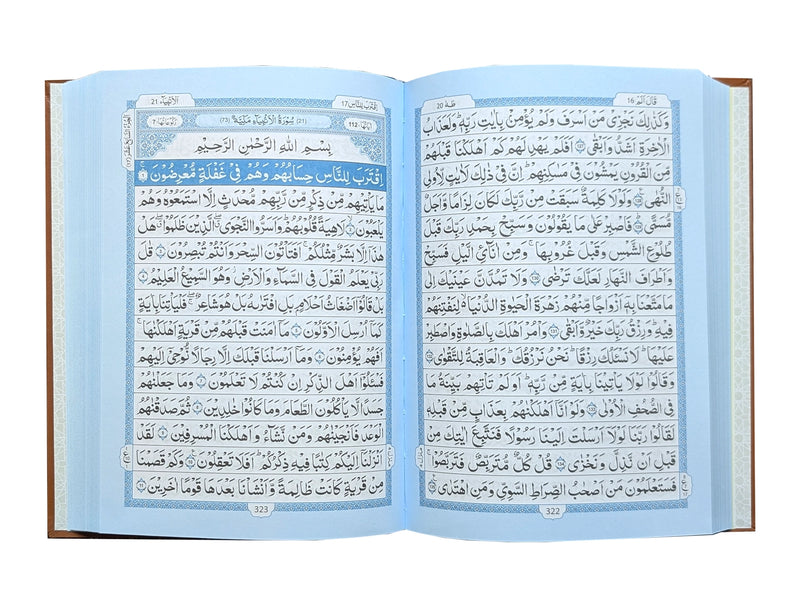 قَالَ اَلَمْ 16
طٰهٰ 20
وَكَذٰلِكَ نَجْزِيْ مَنْ اَسْرَفَ وَلَمْ يُؤْمِنْۢ بِاٰيٰتِ رَبِّهٖ ؕ وَلَعَذَابُ
الْاٰخِرَةِ اَشَدُّ وَاَبْقٰى ۝۱۲۷ اَفَلَمْ يَهْدِ لَهُمْ كَمْ اَهْلَكْنَا قَبْلَهُمْ
مِّنَ الْقُرُوْنِ يَمْشُوْنَ فِيْ مَسٰكِنِهِمْ ؕ اِنَّ فِيْ ذٰلِكَ لَاٰيٰتٍ لِّاُولِي
النُّهٰى ۝۱۲۸ وَلَوْلَا كَلِمَةٌ سَبَقَتْ مِنْ رَّبِّكَ لَكَانَ لِزَامًا وَّاَجَلٌ
مُّسَمًّى ۝۱۲۹ فَاصْبِرْ عَلٰى مَا يَقُوْلُوْنَ وَسَبِّحْ بِحَمْدِ رَبِّكَ قَبْلَ
طُلُوْعِ الشَّمْسِ وَقَبْلَ غُرُوْبِهَا ۚ وَمِنْ اٰنَآئِ الَّيْلِ فَسَبِّحْ
وَاَطْرَافَ النَّهَارِ لَعَلَّكَ تَرْضٰى ۝۱۳۰ وَلَا تَمُدَّنَّ عَيْنَيْكَ اِلٰى
مَا مَتَّعْنَا بِهٖۤ اَزْوَاجًا مِّنْهُمْ زَهْرَةَ الْحَيٰوةِ الدُّنْيَا ۙ لِنَفْتِنَهُمْ
فِيْهِ ؕ وَرِزْقُ رَبِّكَ خَيْرٌ وَّاَبْقٰى ۝۱۳۱ وَاْمُرْ اَهْلَكَ بِالصَّلٰوةِ وَاصْطَبِرْ
عَلَيْهَا ؕ لَا نَسْـَٔلُكَ رِزْقًا ؕ نَحْنُ نَرْزُقُكَ ؕ وَالْعَاقِبَةُ لِلتَّقْوٰى ۝۱۳۲
وَقَالُوْا لَوْلَا يَاْتِيْنَا بِاٰيَةٍ مِّنْ رَّبِّهٖ ؕ اَوَلَمْ تَاْتِهِمْ بَيِّنَةُ مَا
فِي الصُّحُفِ الْاُوْلٰى ۝۱۳۳ وَلَوْ اَنَّاۤ اَهْلَكْنٰهُمْ بِعَذَابٍ مِّنْ قَبْلِهٖ
لَقَالُوْا رَبَّنَا لَوْلَاۤ اَرْسَلْتَ اِلَيْنَا رَسُوْلًا فَنَتَّبِعَ اٰيٰتِكَ مِنْ
قَبْلِ اَنْ نَّذِلَّ وَنَخْزٰى ۝۱۳۴ قُلْ كُلٌّ مُّتَرَبِّصٌ فَتَرَبَّصُوْا ۚ
فَسَتَعْلَمُوْنَ مَنْ اَصْحٰبُ الصِّرَاطِ السَّوِيِّ وَمَنِ اهْتَدٰى ۝۱۳۵
322
اِقْتَرَبَ لِلنَّاسِ 17
اَلْاَنْۢبِيَآء 21
اٰيَاتُهَا 112
(21) سُوْرَةُ الْاَنْۢبِيَآءِ مَكِّيَّةٌ (73)
رُكُوْعَاتُهَا 7
بِسْمِ اللّٰهِ الرَّحْمٰنِ الرَّحِيْمِ
اِقْتَرَبَ لِلنَّاسِ حِسَابُهُمْ وَهُمْ فِيْ غَفْلَةٍ مُّعْرِضُوْنَ ۝۱ۚ
مَا يَاْتِيْهِمْ مِّنْ ذِكْرٍ مِّنْ رَّبِّهِمْ مُّحْدَثٍ اِلَّا اسْتَمَعُوْهُ وَهُمْ
يَلْعَبُوْنَ ۝۲ۙ لَاهِيَةً قُلُوْبُهُمْ ؕ وَاَسَرُّوا النَّجْوَى ۖ الَّذِيْنَ ظَلَمُوْا ۖ هَلْ
هٰذَاۤ اِلَّا بَشَرٌ مِّثْلُكُمْ ۚ اَفَتَاْتُوْنَ السِّحْرَ وَاَنْتُمْ تُبْصِرُوْنَ ۝۳ قٰلَ
رَبِّيْ يَعْلَمُ الْقَوْلَ فِي السَّمَآءِ وَالْاَرْضِ ؗ وَهُوَ السَّمِيْعُ الْعَلِيْمُ ۝۴
بَلْ قَالُوْۤا اَضْغَاثُ اَحْلَامٍۭ بَلِ افْتَرٰىهُ بَلْ هُوَ شَاعِرٌ ۖۚ فَلْيَاْتِنَا بِاٰيَةٍ
كَمَاۤ اُرْسِلَ الْاَوَّلُوْنَ ۝۵ مَاۤ اٰمَنَتْ قَبْلَهُمْ مِّنْ قَرْيَةٍ اَهْلَكْنٰهَا ۚ
اَفَهُمْ يُؤْمِنُوْنَ ۝۶ وَمَاۤ اَرْسَلْنَا قَبْلَكَ اِلَّا رِجَالًا نُّوْحِيْۤ اِلَيْهِمْ
فَسْـَٔلُوْۤا اَهْلَ الذِّكْرِ اِنْ كُنْتُمْ لَا تَعْلَمُوْنَ ۝۷ وَمَا جَعَلْنٰهُمْ
جَسَدًا لَّا يَاْكُلُوْنَ الطَّعَامَ وَمَا كَانُوْا خٰلِدِيْنَ ۝۸ ثُمَّ صَدَقْنٰهُمُ
الْوَعْدَ فَاَنْجَيْنٰهُمْ وَمَنْ نَّشَآءُ وَاَهْلَكْنَا الْمُسْرِفِيْنَ ۝۹ لَقَدْ
اَنْزَلْنَاۤ اِلَيْكُمْ كِتٰبًا فِيْهِ ذِكْرُكُمْ ؕ اَفَلَا تَعْقِلُوْنَ ۝۱۰ وَكَمْ قَصَمْنَا
مِنْ قَرْيَةٍ كَانَتْ ظَالِمَةً وَّاَنْشَاْنَا بَعْدَهَا قَوْمًا اٰخَرِيْنَ ۝۱۱
323